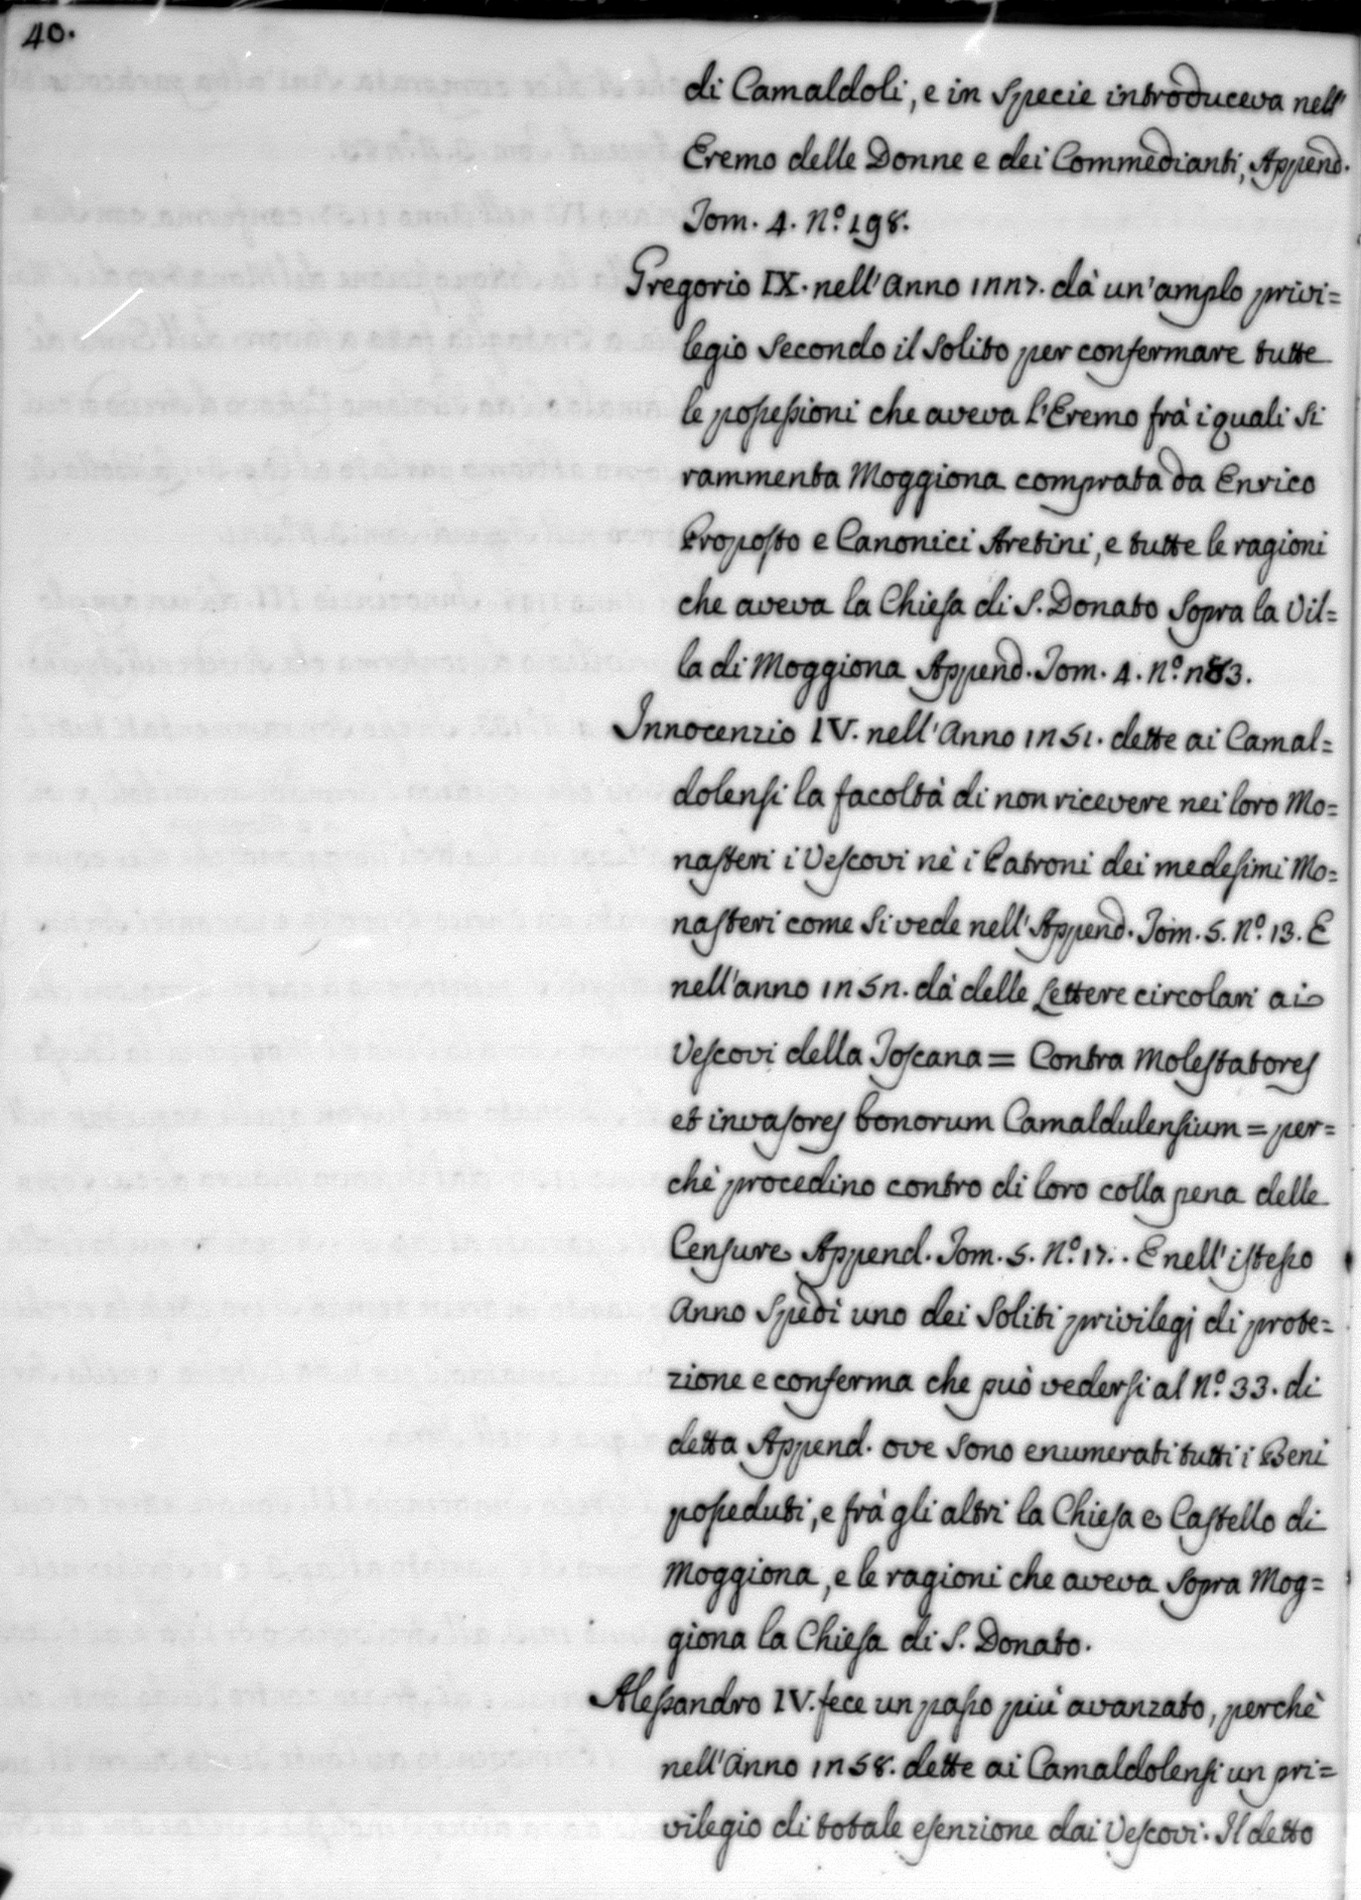 40.
di Camaldoli, e in specie introduceva nell'
Eremo delle Donne e dei Commedianti, Append.
Tom. 4. N.º 198.
Gregorio IX. nell'Anno 1227. dà un'amplo privi=
legio secondo il solito per confermare tutte
le possessioni che aveva l'Eremo frà i quali si
rammenta Moggiona comprata da Enrico
Proposto e Canonici Aretini, e tutte le ragioni
che aveva la Chiesa di S. Donato sopra la Vil=
la di Moggiona Append. Tom. 4. N.º 283.
Innocenzio IV. nell'Anno 1251. dette ai Camal=
dolensi la facoltà di non ricevere nei loro Mo=
nasteri i Vescovi nè i Patroni dei medesimi Mo=
nasteri come si vede nell'Append. Tom. 5. N.º 13. E
nell'anno 1252. dà delle Lettere circolari ai
Vescovi della Toscana = Contra Molestatores
et invasores bonorum Camaldulensium = per=
chè procedino contro di loro colla pena delle
Censure Append. Tom. 5. N.º 17.. E nell'istesso
Anno spedì uno dei soliti privilegj di prote=
zione e conferma che può vedersi al N.º 33. di
detta Append. ove sono enumerati tutti i Beni
posseduti, e frà gli altri la Chiesa e Castello di
Moggiona, e le ragioni che aveva sopra Mog=
giona la Chiesa di S. Donato.
Alessandro IV. fece un passo più avanzato, perchè
nell'Anno 1258. dette ai Camaldolensi un pri=
vilegio di totale esenzione dai Vescovi. Il detto